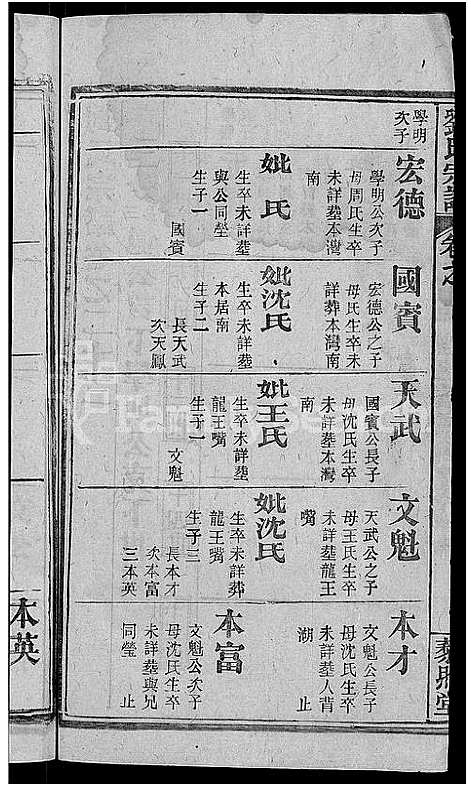 學明
次子
宏德
學明公次子
母周氏生卒
未詳塟本灣
南
妣氏
生卒未詳塟
與公同塋
生子一
國賓
國賓
宏德公之子
母氏生卒未
詳葬本灣南
妣沈氏
生卒未詳塟
本居南
生子二
長天武
次天鳳
天武
國賓公長子
母沈氏生卒
未詳塟本灣
南
妣王氏
生卒未詳塟
龍王嘴
生子一
文魁
文魁
天武公之子
母王氏生卒
未詳塟龍王
嘴
妣沈氏
生卒未詳葬
龍王嘴
生子三
長本才
次本富
三本英
本才
文魁公長子
母沈氏生卒
未詳塟人背
湖 止
本富
文魁公次子
母沈氏生卒
未詳塟與兄
同塋 止
本英